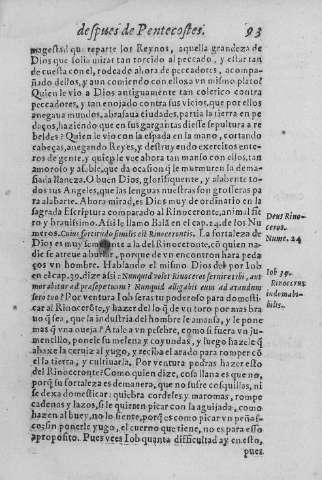 despues de Pentecostes. 93
magestad que reparte los Reynos, aquella grandeza de
Dios que solia mirar tan torcido al peccado, y estar tan
de cuesta con el, rodeado ahora de peccadores, acompa-
ñado dellos, y aun comiendo con ellos a vn mismo plato?
Quien le vio a Dios antiguamente tan colerico contra
peccadores, y tan enojado contra sus vicios, que por ellos
anegaua mundos, abrasaua ciudades, partia la tierra en pe
daços, haziendo que en sus gargantas diesse sepultura a re
beldes? Quien le vio con la espada en la mano, cortando
cabeças, anegando Reyes, y destruyendo exercitos ente-
ros de gente, y quien le vee ahora tan manso con ellos, tan
amoroso y afable, que da ocasion q̃ le murmuren la dema-
siada llaneza. O buen Dios, glorifiquente, y alabente to-
dos tus Angeles, que las lenguas nuestras son grosseras pa
ra alabarte. Ahora mirad, es Dios muy de ordinario en la
sagrada Escriptura comparado al Rinoceronte, animal fie
ro y brauissimo. Assi le llamò Balã en el cap. 24. de los Nu
meros. Cuius fortitudo similis est Rinocerotis. La fortaleza de
Dios es muy semejante a la del Rinoceronte, cõ quien na-
die se atreue a burlar, porque de vn encontron hara peda
ços vn hombre. Hablando el mismo Dios de si por Iob
en el cap. 39. dize assi: Nunquid volet Rinoceros seruire tibi, aut
morabitur ad præsepe tuum? Nunquid alligabis eum ad arandum
loro tuo? Por ventura Iob seras tu poderoso para domesti-
car al Rinocerõte, y hazer del lo q̃ de vn toro por mas bra
uo q̃ sea, que la industria del hombre le amansa, y le pone
mas q̃ vna oueja? Atale a vn pesebre, como si fuera vn ju-
mencillo, ponele su melena y coyundas, y luego hazele q̃
abaxe la ceruiz al yugo, y reciba el arado para romper cõ
el la tierra, y cultiuarla. Por ventura podras hazer esto
del Rinoceronte? Como quien dize, cosa llana es que no,
porq̃ su fortaleza es demanera, que no sufre cosquillas, ni
se dexa domesticar: quiebra cordeles, y maromas, rompe
cadenas y lazos, si le quieren picar con la aguijada, como
hazen al buey, no lo siente, porq̃ es como picar vn peñas-
co: sin ponerle yugo, el cuerno que tiene, no es para esso
aproposito. Pues vees Iob quanta difficultad ay en esto,
pues
Deus Rino-
ceros.
Nume. 24
Iob 39.
Rinoceros
indomabi-
bilis.